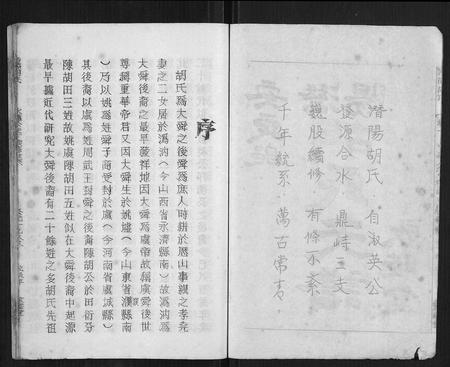 潛陽胡氏 自淑英公
遷源合水 鼎峙三支
股續修 有條不紊
千年統系 萬古常青
序
胡氏爲大舜之後舜爲庶人時耕於厯山事親之孝堯
妻之二女居於溈汭(今山西省永濟縣南)故溈汭爲
大舜後裔之最早發祥地因大舜爲虞帝故稱虞舜後世
尊稱重華帝君又因大舜生於姚墟(今山東省濮縣南
)乃以姚爲姓舜子商均受封於虞(今河南省虞城縣)
其後裔以虞爲姓周武王封舜之後裔陳胡公於田衍分
陳胡田三姓故姚虞陳胡田五姓似在大舜後裔中起源
最早據近代研究大舜後裔有二十餘姓之多胡氏先祖